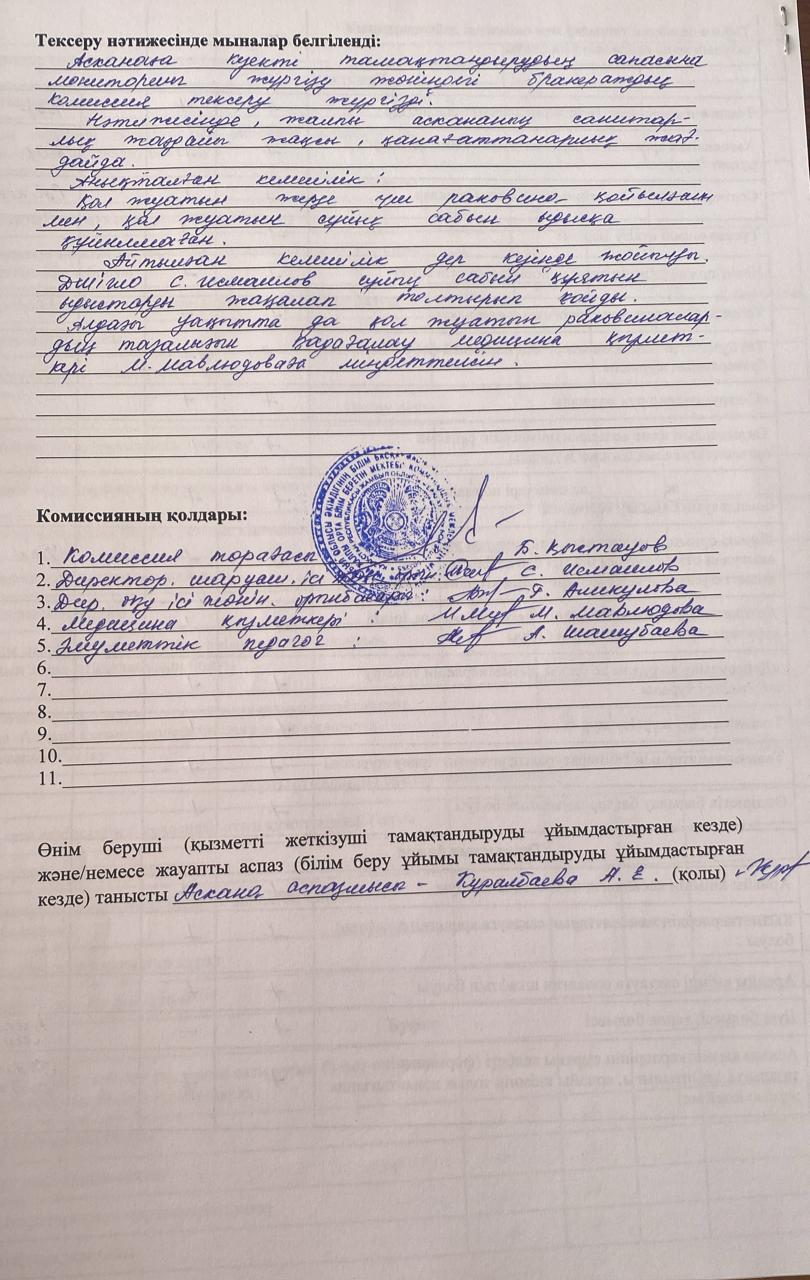 Тексеру нәтижесінде мыналар белгіленді:
Асханаға күнекті тамақтандырудың сапасына
мониторинг жүргізу жөніндегі бракераждық
комиссия тексеру жүргізді.
Нәтижесінде, жалпы асхананың санитар-
лық жағдайы жақсы, қанағаттанарлық жағ-
дайда.
Анықталған кемшілік:
Қол жуатын жерде үш раковина қойылғаны
мен, қол жуатын сұйық сабын ыдысқа
құйылмаған.
Айтылған кемшілік дер кезінде жойылды.
С. Исмаилов сұйық сабын құятын
ыдыстарды жаңалап толтырып қойды.
Алдағы уақытта да қол жуатын раковиналар-
дың тазалығын қадағалау медицина қызмет-
кері М. Мавлюдоваға міндеттелсін.
Комиссияның қолдары:
1. Комиссия төрағасы Б. Қыстауов
2. Директор. шаруаш. ісі С. Исмаилов
3. Дир. оқу ісі жөнін. орынбасары: Г. Аликулова
4. Медицина қызметкері: М. Мавлюдова
5. Әлуметтік педагог: А. Шашубаева
6.
7.
8.
9.
10.
11.
Өнім беруші (қызметті жеткізуші тамақтандыруды ұйымдастырған кезде)
және/немесе жауапты аспаз (білім беру ұйымы тамақтандыруды ұйымдастырған
кезде) танысты Асхана аспазшысы - Куралбаева А. Е. (қолы)